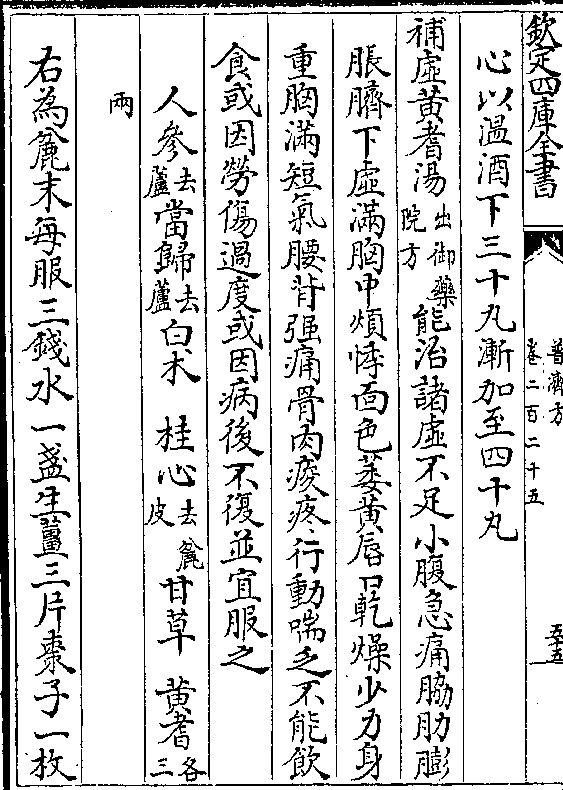 欽定四庫全書
普濟方
卷二百二十五
五十五
心以温酒下三十丸漸加至四十丸
補虚黄耆湯出御藥院方能治諸虚不足小腹急痛脇肋膨
脹臍下虚滿胸中煩悸面色萎黄唇口乾燥少力身
重胸滿短氣腰背强痛骨肉痠疼行動喘乏不能飲
食或因勞傷過度或因病後不復並宜服之
人參去蘆當歸去蘆白术 桂心去麄皮甘草 黄耆各三
兩
右為麄末每服三錢水一盞生薑三片棗子一枚